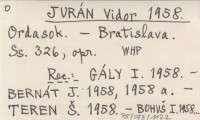 JURÁN Vidor 1958.
Ordasok. - Bratislava.
Ss. 326, opr. WHP
Rec.: - GÁLY I. 1958. -
BERNÁT J. 1958, 1958 a. -
TEREN Š. 1958. - BOHUŠ I. 1958...